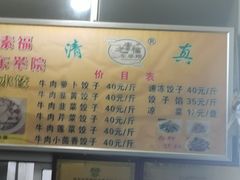 素福
清真
®
水饺
价目表
牛肉萝卜饺子 40元/斤
牛肉韭黄饺子 40元/斤
牛肉韭菜饺子 40元/斤
牛肉芹菜饺子 40元/斤
牛肉莲菜饺子 40元/斤
牛肉小茴香饺子 40元/斤
速冻饺子 40元/斤
饺子馅 35元/斤
凉菜